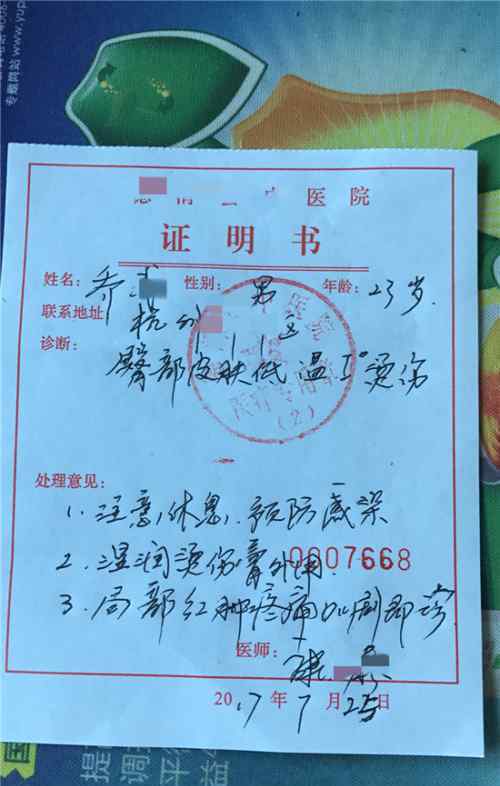 专题网站 www.yup
医院
证明书
姓名: 乔 性别: 男 年龄: 23岁.
联系地址: 杭州 区
诊断:
臀部皮肤低温I°烫伤
(2)
处理意见:
1. 注意休息, 预防感染
2. 湿润烫伤膏外用. 0007668
3. 局部红肿疼痛加剧即诊
医师: 陈
2017年7月25日
国
提
调
平
益